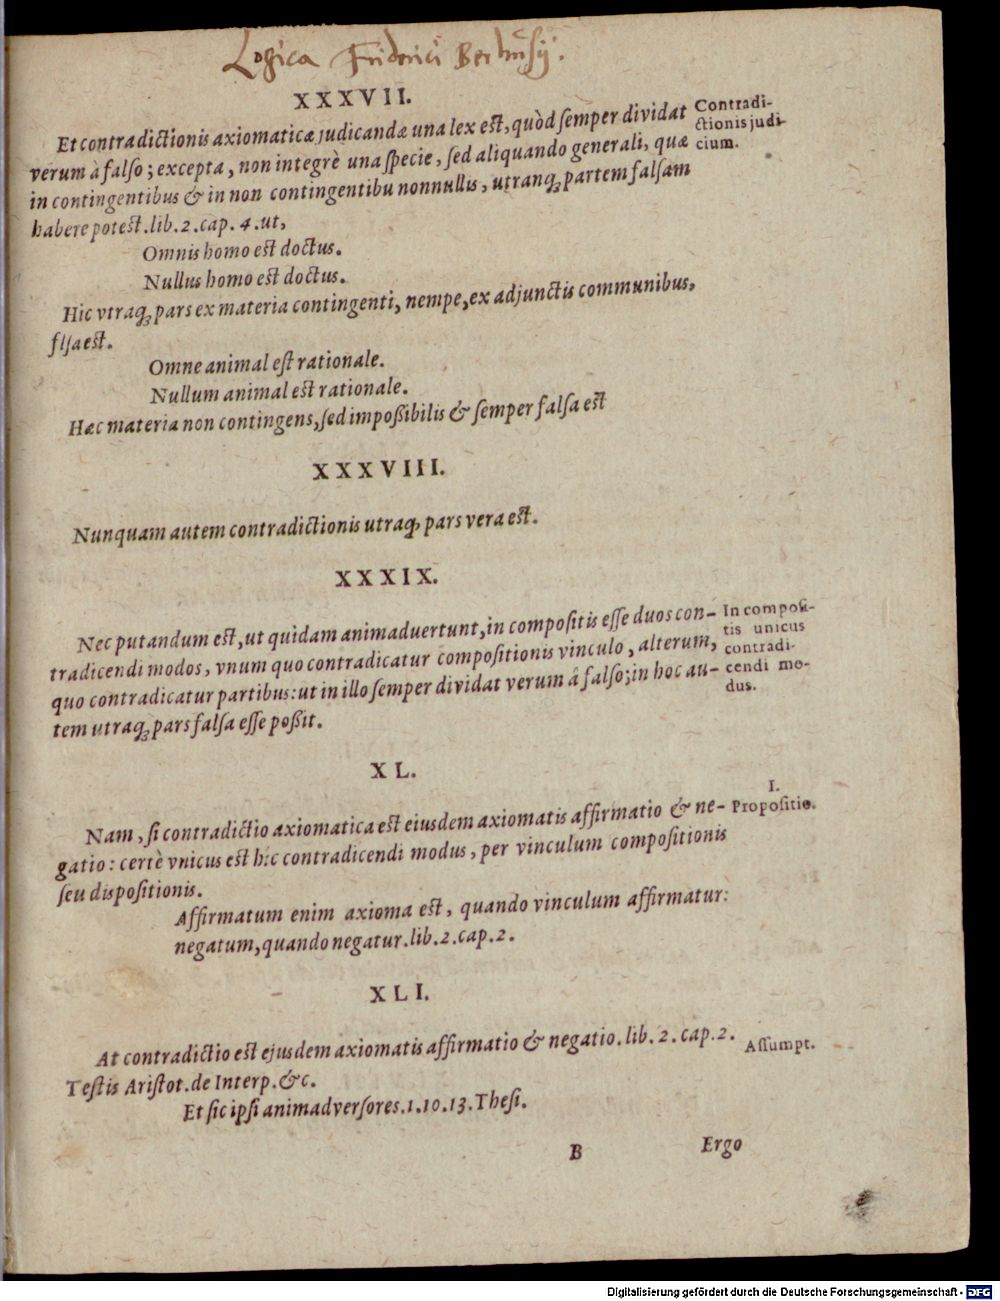 Logica Friderici
XXXVII.
Et contradictionis axiomaticæ judicandæ una lex est, quòd semper dividat
verum à falso; excepta, non integrè una specie, sed aliquando generali, quæ
in contingentibus & in non contingentibu nonnullis, utranq; partem falsam
habere potest. lib. 2. cap. 4. ut,
Contradi-
ctionis judi-
cium.
Omnis homo est doctus.
Nullus homo est doctus.
Hic vtraq; pars ex materia contingenti, nempe, ex adjunctis communibus,
flsa est.
Omne animal est rationale.
Nullum animal est rationale.
Hæc materia non contingens, sed impoßibilis & semper falsa est
XXXVIII.
Nunquam autem contradictionis utraq; pars vera est.
XXXIX.
Nec putandum est, ut quidam animaduertunt, in compositis esse duos con-
tradicendi modos, vnum quo contradicatur compositionis vinculo, alterum,
quo contradicatur partibus: ut in illo semper dividat verum â falso; in hoc au-
tem utraq; pars falsa esse poßit.
In composi-
tis unicus
contradi-
cendi mo-
dus.
XL.
Nam, si contradictio axiomatica est eiusdem axiomatis affirmatio & ne-
gatio: certè vnicus est hic contradicendi modus, per vinculum compositionis
seu dispositionis.
I.
Propositio.
Affirmatum enim axioma est, quando vinculum affirmatur:
negatum, quando negatur. lib. 2. cap. 2.
XLI.
At contradictio est ejusdem axiomatis affirmatio & negatio. lib. 2. cap. 2.
Testis Aristot. de Interp. &c.
Assumpt.
Et sic ipsi animadversores. 1. 10. 13. Thesi.
B
Ergo
Digitalisierung gefördert durch die Deutsche Forschungsgemeinschaft - DFG